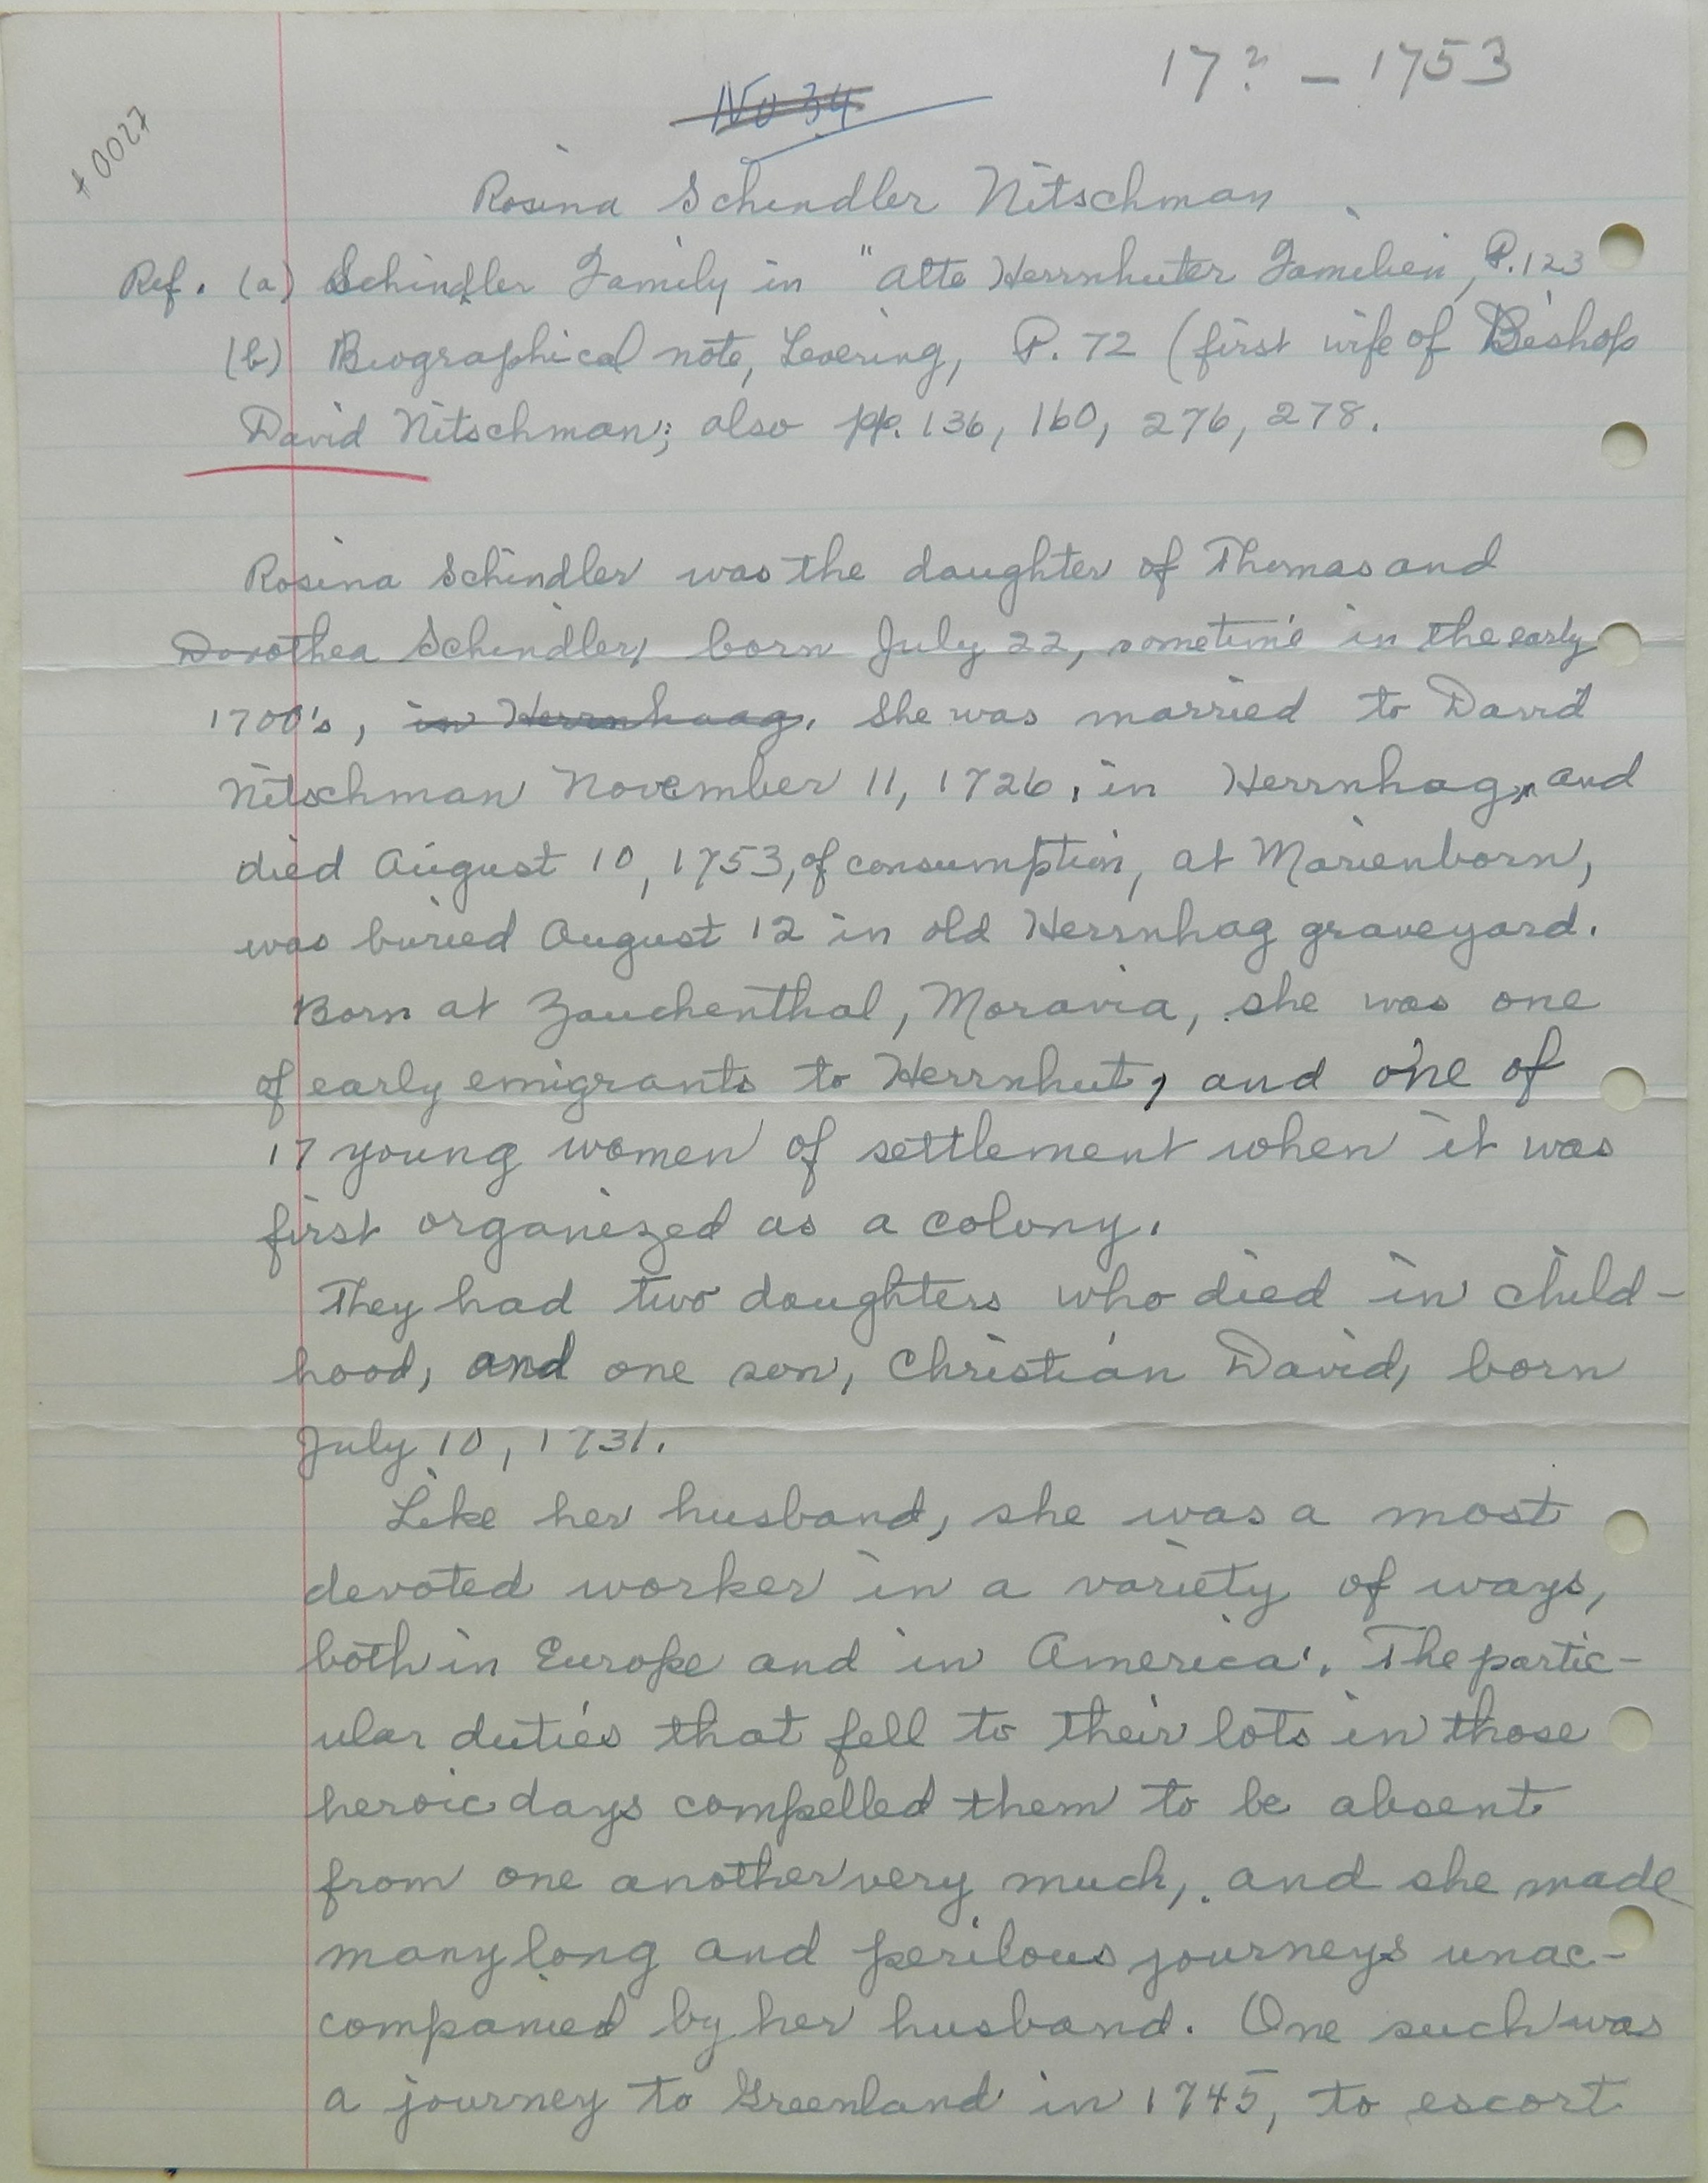 17? – 1753
No 34
+0027
Rosina Schindler Nitschman
Ref. (a) Schindler Family in "Alte Herrnhuter Familien, P. 123
(b) Biographical note, Levering, P. 72 (first wife of Bishop
David Nitschman; also pp. 136, 160, 276, 278.
Rosina Schindler was the daughter of Thomas and
Dorothea Schindler, born July 22, sometime in the early
1700's, in Herrnhaag. She was married to David
Nitschman November 11, 1726, in Herrnhag, and
died August 10, 1753, of consumption, at Marienborn,
was buried August 12 in old Herrnhag graveyard.
Born at Zauchenthal, Moravia, she was one
of early emigrants to Herrnhut, and one of
17 young women of settlement when it was
first organized as a colony.
They had two daughters who died in child-
hood, and one son, Christian David, born
July 10, 1731.
Like her husband, she was a most
devoted worker in a variety of ways,
both in Europe and in America. The partic-
ular duties that fell to their lots in those
heroic days compelled them to be absent
from one another very much, and she made
many long and perilous journeys unac-
companied by her husband. One such was
a journey to Greenland in 1745, to escort